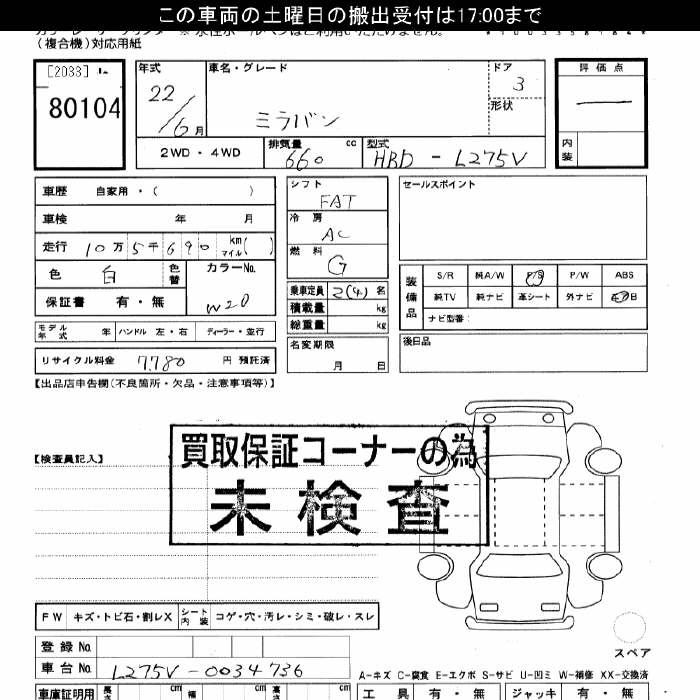 この車両の土曜日の搬出受付は17:00まで
(複合機)対応用紙
[2033]
80104
年式 22/6月
車名・グレード ミラバン
ドア 3
形状
評価点 —
内装
2WD・4WD
排気量 660 cc
型式 HBD-L275V
車歴 自家用・( )
車検 年 月
走行 10万5千690 km マイル( )
色 白 色替
カラーNo. W20
保証書 有・無
モデル年式 年 ハンドル 左・右 ディーラー・並行
リサイクル料金 7780 円 預託済
シフト FAT
冷房 AC
燃料 G
乗車定員 2(4) 名
積載量 kg
総重量 kg
名変期限 月 日
セールスポイント
装備品
S/R 純A/W P/S P/W ABS
純TV 純ナビ 革シート 外ナビ
ナビ型番:
後日品
【出品店申告欄(不良箇所・欠品・注意事項等)】
【検査員記入】
買取保証コーナーの為
未検査
FW キズ・トビ石・割レX シート内装 コゲ・穴・汚レ・シミ・破レ・スレ
登録No.
車台No. L275V-0034736
スペア
A-キズ C-腐食 E-エクボ S-サビ U-凹ミ W-補修 XX-交換済
車庫証明用 長さ cm 幅 cm 高さ cm
工具 有・無 ジャッキ 有・無